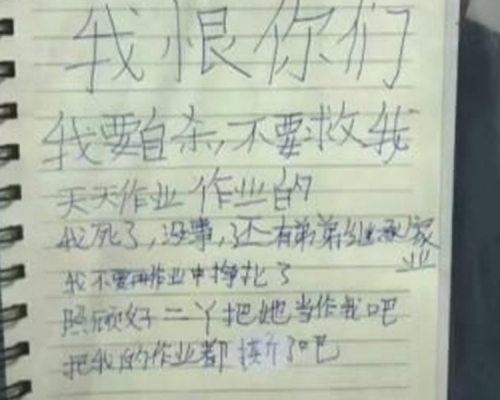 我恨你们
我要自杀,不要救我
天天作业作业的
我死了,没事,还有弟弟继承家业
我不要再作业中挣扎了
照顾好二丫把她当作我吧
把我的作业都撕了吧